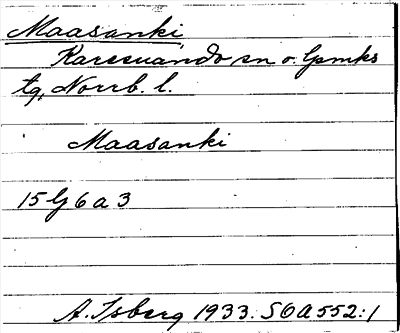 Maasanki
Karesuando sn o. lpmks
tg, Norrb. l.
Maasanki
15 G 6 a 3
A. Isberg 1933. SOA 552:1